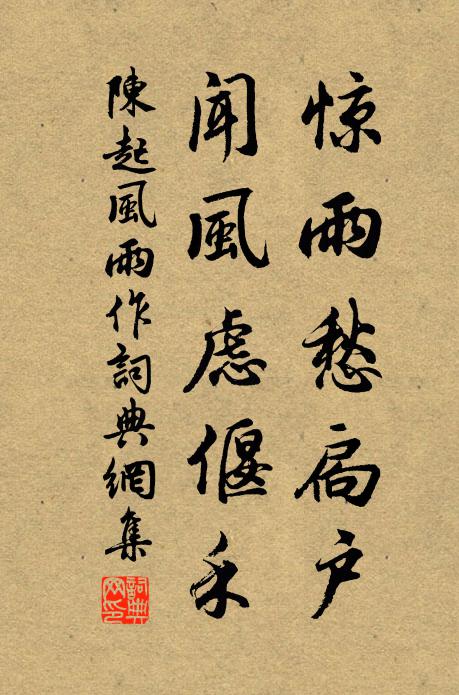 惊雨愁扃户
闻風虑偃禾
陳起風雨作詞典網集
詞典网印